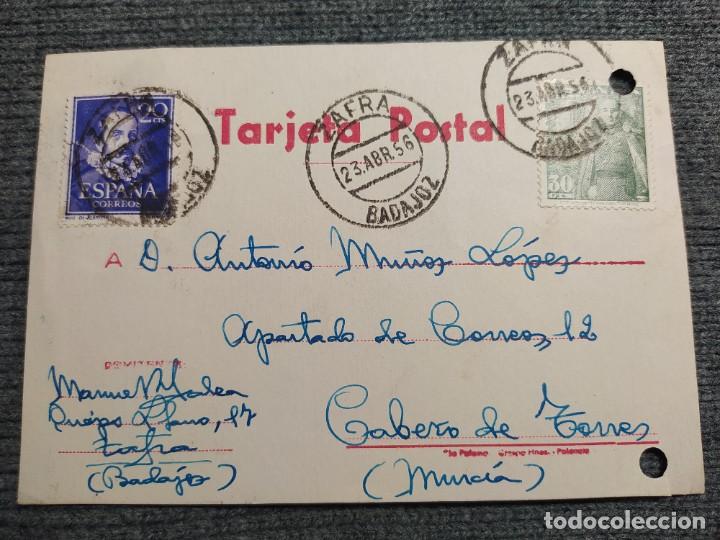 ZAFRA
23.ABR.56
BADAJOZ
20 CTS
ESPAÑA
CORREOS
Tarjeta Postal
ZAFRA
23.ABR.56
BADAJOZ
ZAFRA
23.ABR.56
BADAJOZ
30
A D. Antonio Muñoz López
Apartado de Correos, 12
REMITENTE:
Manuel
Queipo Llano, 17
Zafra
(Badajoz)
Cabezo de Torres
(Murcia)
Hnos. - Palencia
todocoleccion.net